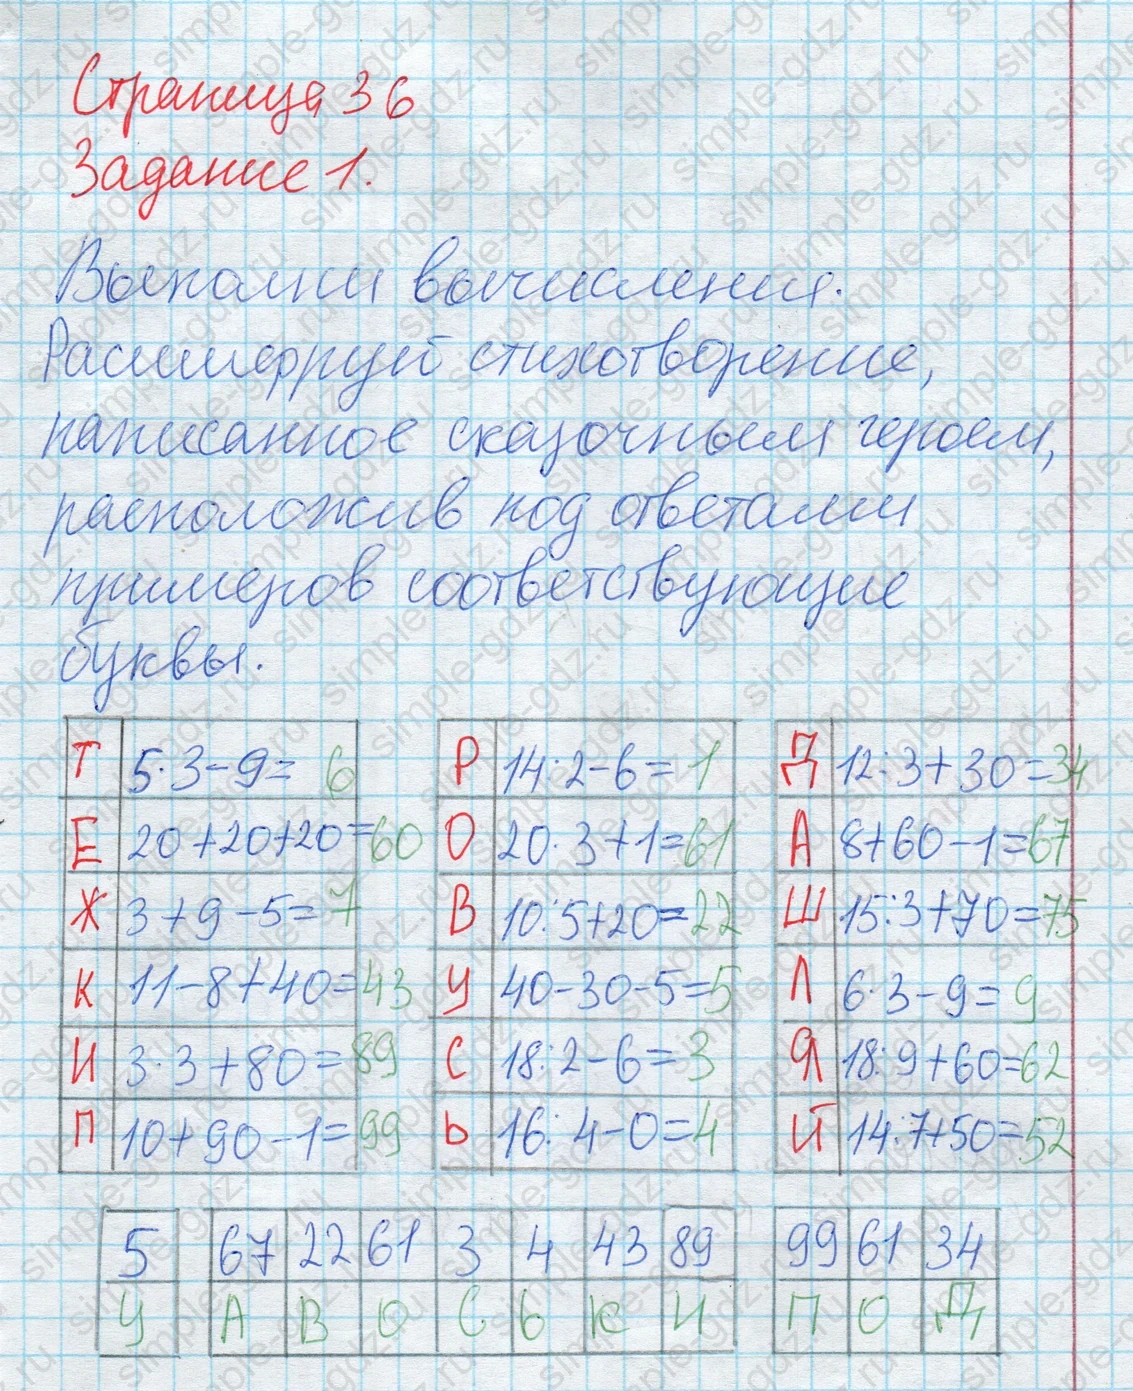 Страница 36
Задание 1.
Выполни вычисления.
Расшифруй стихотворение,
написанное сказочным героем,
расположив под ответами
примеров соответствующие
буквы.
Т 5·3-9= 6 Р 14:2-6=1 Д 12:3+30=34
Е 20+20+20=60 О 20·3+1=61 А 8+60-1=67
Ж 3+9-5=7 В 10:5+20=22 Ш 15:3+70=75
К 11-8+40=43 У 40-30-5=5 Л 6·3-9=9
И 3·3+80=89 С 18:2-6=3 Я 18:9+60=62
П 10+90-1=99 Ь 16:4-0=4 Й 14:7+50=52
5 67 22 61 3 4 43 89 99 61 34
У А В О С Ь К И П О Д
simple-gdz.ru